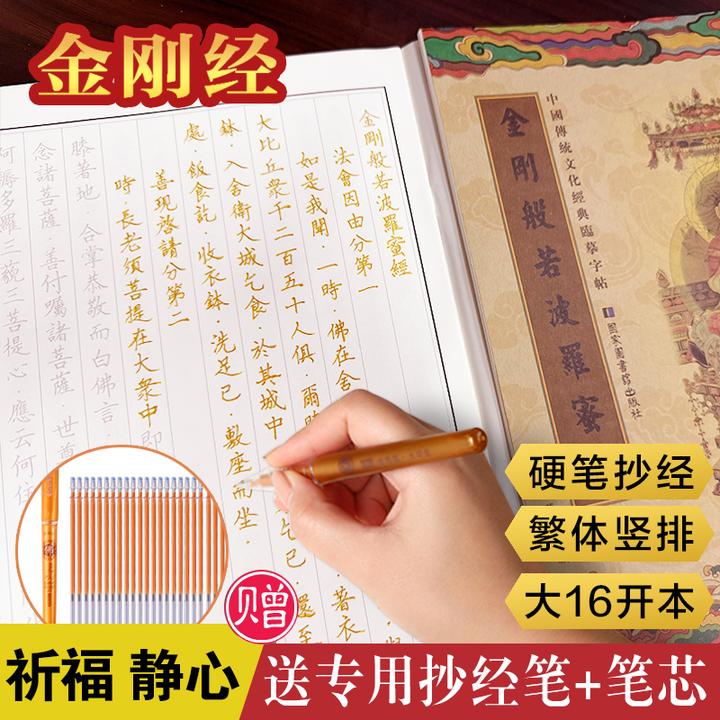 金刚经
金剛般若波羅蜜經
法會因由分第一
如是我聞．一時．佛在舍
大比丘衆千二百五十人俱．爾時 著衣
鉢．入舍衛大城乞食．於其城中 乞已．還至
處．飯食訖．收衣鉢．洗足已．敷座而坐．
善現啓請分第二
時．長老須菩提在大衆中 即
膝著地．合掌恭敬而白佛言．
念諸菩薩．善付囑諸菩薩．世尊
阿耨多羅三藐三菩提心．應云何住
中國傳統文化經典臨摹字帖
金剛般若波羅蜜
國家圖書館出版社
硬笔抄经
繁体竖排
大16开本
赠
祈福 静心
送专用抄经笔+笔芯